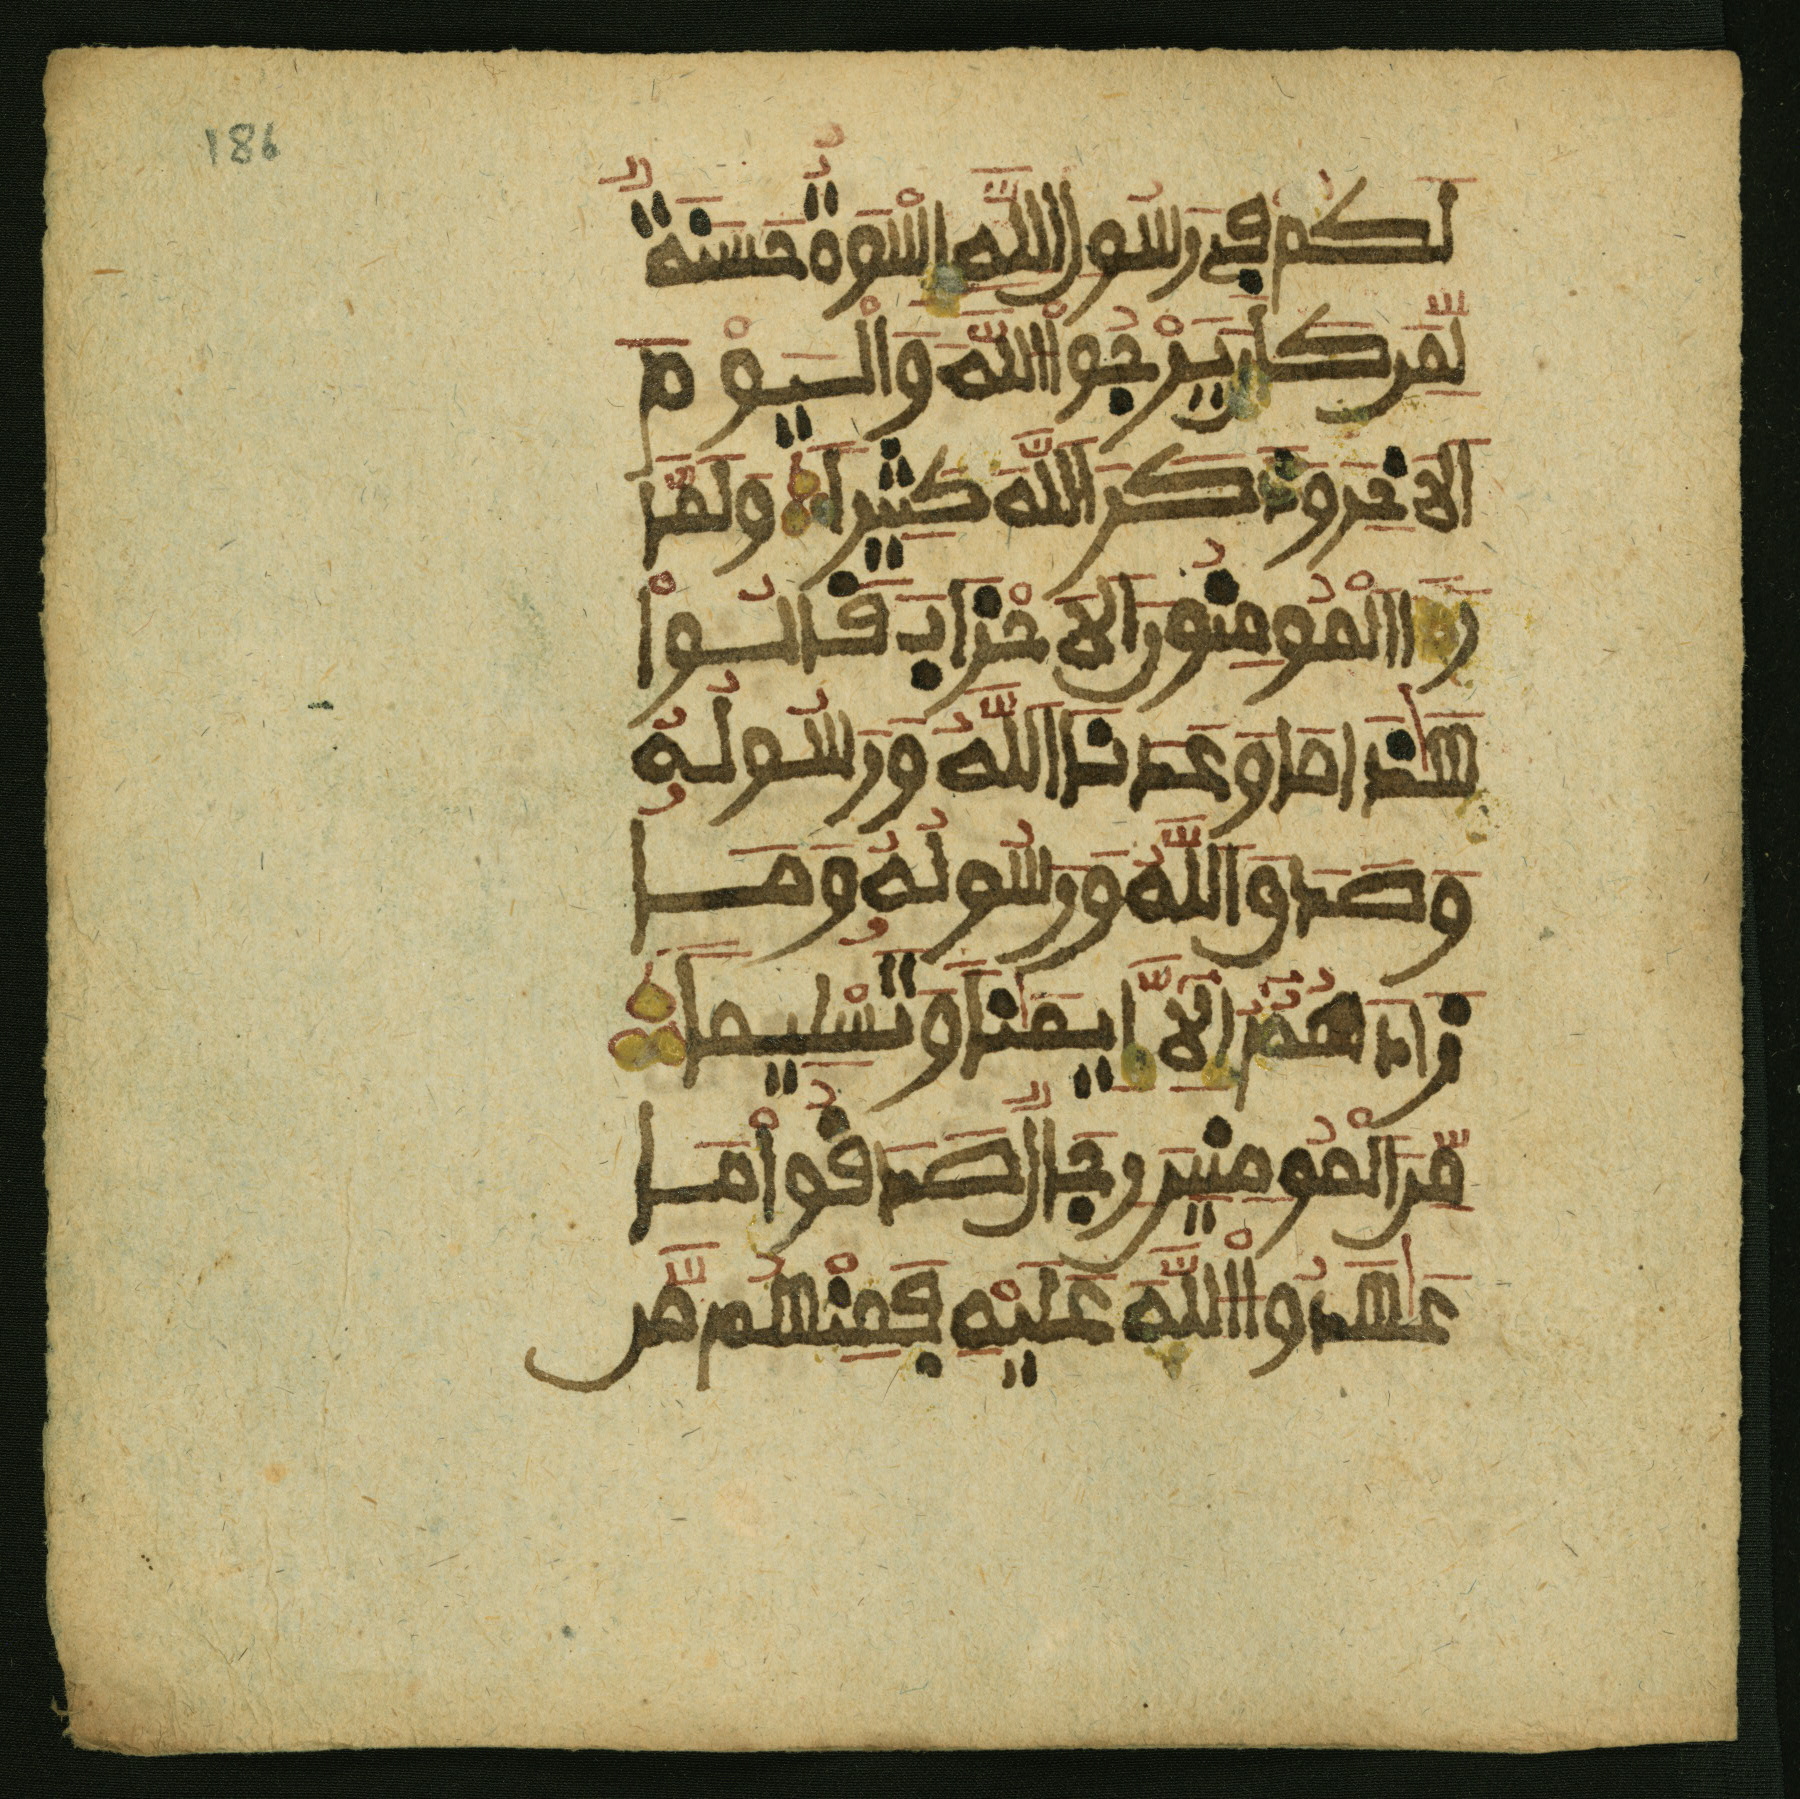 186
لَكُمْ فِے رَسُولِ اللَّهِ إِسْوَةٌ حَسَنَةٌ
لِّمَن كَانَ يَرْجُواْ اللَّهَ وَالْيَوْمَ
الَاخِرَ وَذَكَرَ اللَّهَ كَثِيراً وَلَمَّا
رَءَا الْمُومِنُونَ الَاحْزَابَ قَالُواْ
هَٰذَا مَا وَعَدَنَا اللَّهُ وَرَسُولُهُ
وَصَدَقَ اللَّهُ وَرَسُولُهُ وَمَا
زَادَهُمُ إِلَّا إِيمَٰناً وَتَسْلِيماً
مِّنَ الْمُومِنِينَ رِجَالٌ صَدَقُواْ مَا
عَٰهَدُواْ اللَّهَ عَلَيْهِ فَمِنْهُم مَّن